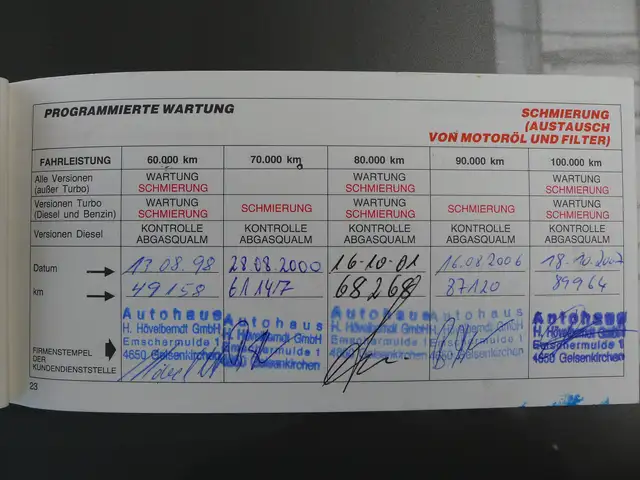 PROGRAMMIERTE WARTUNG
SCHMIERUNG
(AUSTAUSCH
VON MOTORÖL UND FILTER)
FAHRLEISTUNG 60.000 km 70.000 km 80.000 km 90.000 km 100.000 km
Alle Versionen WARTUNG WARTUNG WARTUNG
(außer Turbo) SCHMIERUNG SCHMIERUNG SCHMIERUNG
Versionen Turbo WARTUNG SCHMIERUNG WARTUNG SCHMIERUNG WARTUNG
(Diesel und Benzin) SCHMIERUNG SCHMIERUNG SCHMIERUNG
Versionen Diesel KONTROLLE KONTROLLE KONTROLLE KONTROLLE KONTROLLE
ABGASQUALM ABGASQUALM ABGASQUALM ABGASQUALM ABGASQUALM
Datum 13.08.98 28.08.2000 16-10-01 16.08.2006 18.10.2007
km 49158 61147 68268 87120 89964
Autohaus Autohaus Autohaus Autohaus Autohaus
H. Hövelberndt GmbH H. Hövelberndt GmbH H. Hövelberndt GmbH H. Hövelberndt GmbH H. Hövelberndt GmbH
Emschermulde 1 Emschermulde 1 Emschermulde 1 Emschermulde 1 Emschermulde 1
4650 Gelsenkirchen 4650 Gelsenkirchen 4650 Gelsenkirchen 4650 Gelsenkirchen 4650 Gelsenkirchen
FIRMENSTEMPEL
DER
KUNDENDIENSTSTELLE
23